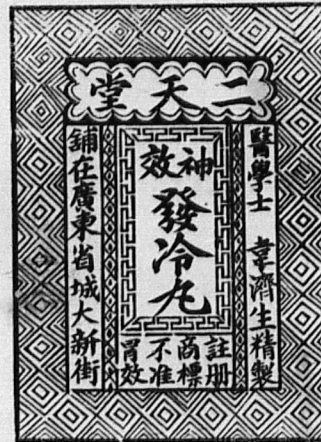 二天堂
醫學士 韋濟生精製
神效
發冷丸
註册
商標
不准
冐效
鋪在廣東省城大新街